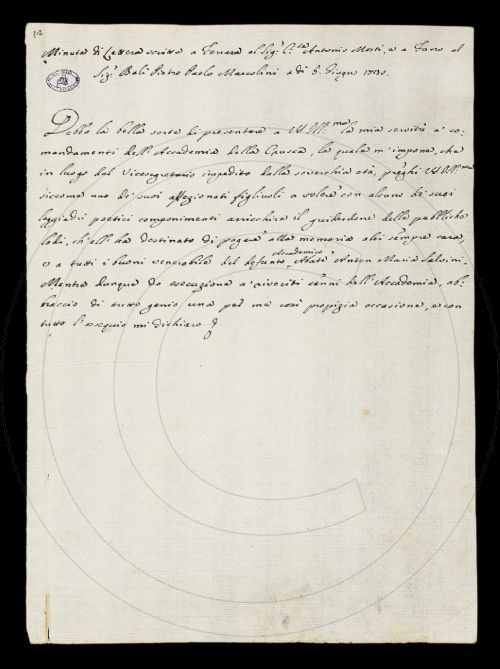 12
Minuta di Lettera scritta a Ferrara al Sig.r C.te Antonio Mosti, e a Fano al
Sig.r Balì Pietro Paolo Marcolini a dì 6. Giugno
Debbo la bella sorte di presentare a VS Ill.ma la mia servitù a' co-
mandamenti dell'Accademia della Crusca, la quale m'impone, che
in luogo del Vicesegretario impedito dalla soverchia età, preghi VS Ill.ma
siccome uno de' suoi affezionati figliuoli a voler con alcuno de' suoi
leggiadri poetici componimenti arricchire il guiderdone delle pubbliche
lodi, ch'ell' ha destinato di pagare alla memoria a lei sempre cara,
e a tutti i buoni venerabile del defunto Accademico Abate Anton Maria Salvini.
Mentre dunque do esecuzione a' riveriti cenni dell'Accademia, ab-
braccio di tutto genio una per me così propizia occasione, e con
tutto l'ossequio mi dichiaro